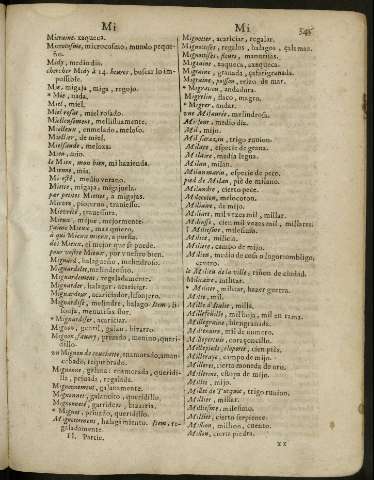 Mi
Mi
545
Micraine, xaqueca.
Microcosme, microcosmo, mundo peque-
ño.
Midy, medio dia.
chercher Midy à 14. heures, buscar lo im-
possible.
Mie, migaja, miga, regojo.
* Mie, nada.
Miel, miel.
Miel rosat, miel rosado.
Mielleusement, mellifluamente.
Mielleux, enmelado, meloso.
Miellier, de miel.
Mien, mio.
le Mien, mon bien, mi hazienda.
Mienne, mia.
Mi-esté, medio verano.
Miette, migaja, migajuela.
par petites Miettes, a migajas.
Mieure, travieso.
Mieureté, travessura.
Mieux, mejor, mejormente.
j'aime Mieux, mas quiero.
à qui Mieux mieux, a porfia.
des Mieux, el mejor que se puede.
pour vostre Mieux, por vuestro bien.
Mignard, halagueño, melindroso.
Mignardelet, melindrosito.
Mignardement, regaladamente.
Mignarder, halagar, acariciar.
Mignardeur, acariciador, lisonjero.
Mignardise, melindre, halago. Item, li-
sonja, menturas flor.
* Mignarder, acariciar.
Mignon, gentil, galan, bizarro.
Mignon, favory, privado, menino, queri-
dillo.
un Mignon de couchette, enamorado, aman-
cebado, requebrado.
Mignonne, galana, enamorada, queridi-
lla, privada, regalada.
Mignonnement, galanamente.
Mignonnet, galancito, queridillo.
Mignonneté, garridez, bizarria.
* Mignot, privado, queridillo.
Mignotement, halagamiento. Item, re-
galadamente.
II. Partie.
Mignoter, acariciar, regalar.
Mignotises, regalos, halagos, galanias.
Mignotises, fleurs, manutisas.
Migraine, xaqueca, axaqueca.
Migraine, granada,
Migraine, poisson, erizo de mar.
* Migration, andadura.
Migrelin, flaco, magro.
* Migrer, andar.
une Mijaurée, melindrosa.
Mi-jour, medio dia.
Mil, mijo.
Mil sarazin, trigo runion.
Milace, especie de grana.
Milaire, media legua.
Milan, milan.
Milan marin, especie de pece.
pied de Milan, pie de milano.
Milandre, cierto pece.
Milocoton, melocoton.
Miliaire, de mijo.
Miliart, mil vezes mil, millar.
Milice, milicia.
Miliere, campo de mijo.
Milieu, medio de cosa o lugar, ombligo,
centro.
le Milieu de la ville, riñon de ciudad.
Militaire, militar.
* Militer, militar, hazer guerra.
Mille, mil.
Mille d'Italie, milla.
Millefueille, mil hoja, mil en rama.
Millegraine, biengranada.
Millenaire, mil de numero.
Millepertuis, coraçoncillo.
Millepieds, cloporte, cien pies.
Milleraye, campo de mijo.
Millerets, cierta moneda de oro.
Milleraie, campo de mijo.
Millet, mijo.
Millet de Turquie, trigo runion.
Millier, millar.
Milliesme, milesimo.
Million, millon, cuento.
Millon, cierta piedra.
xx